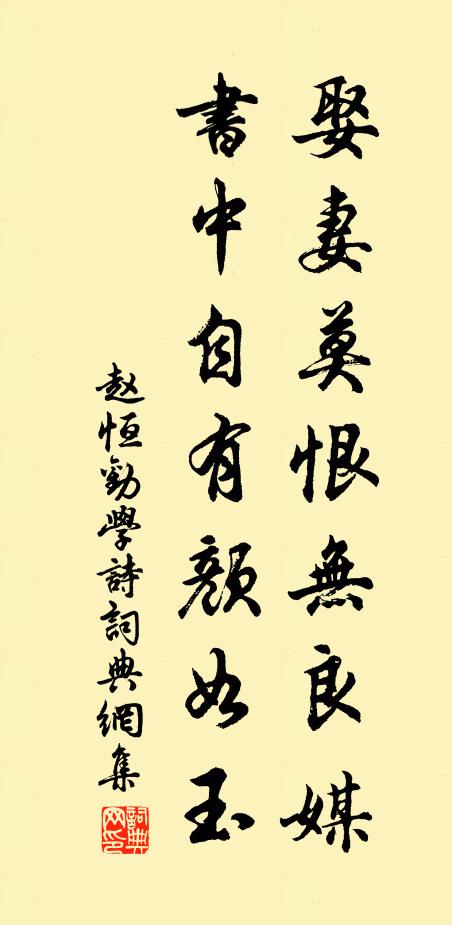 娶妻莫恨無良媒
書中自有顏如玉
趙恒勸學詩詞典網集
詞典网印